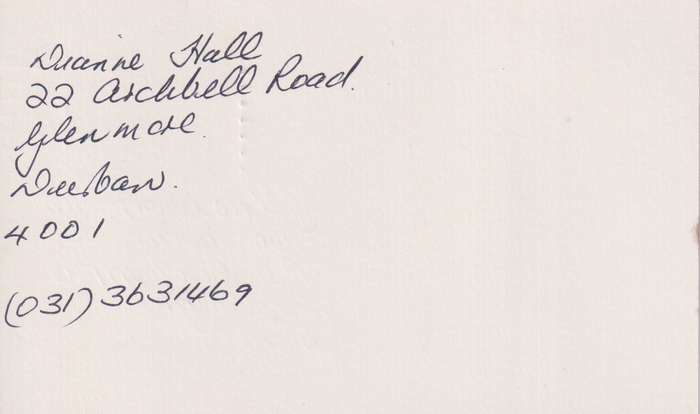 Dianne Hall
22 Archbell Road.
Glenmore.
Durban.
4001
(031) 3631469